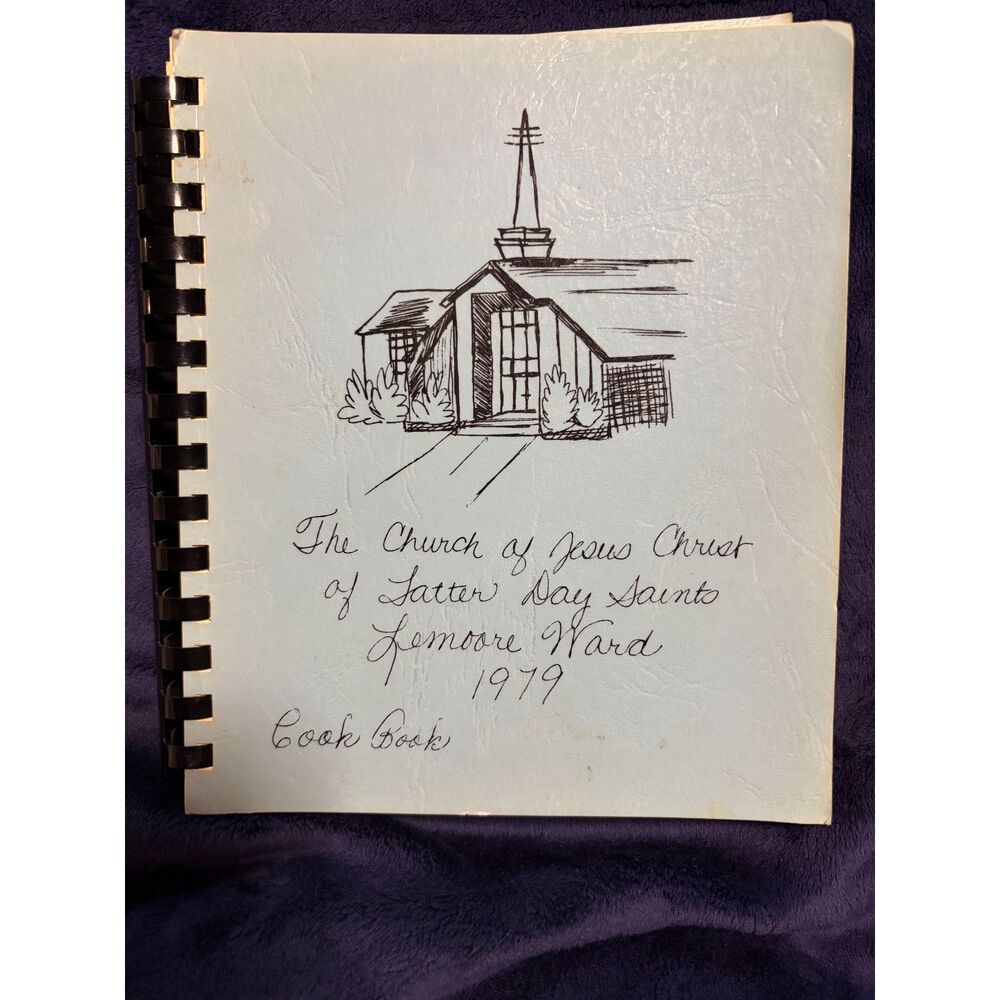 The Church of Jesus Christ
of Latter Day Saints
Lemoore Ward
1979
Cook Book